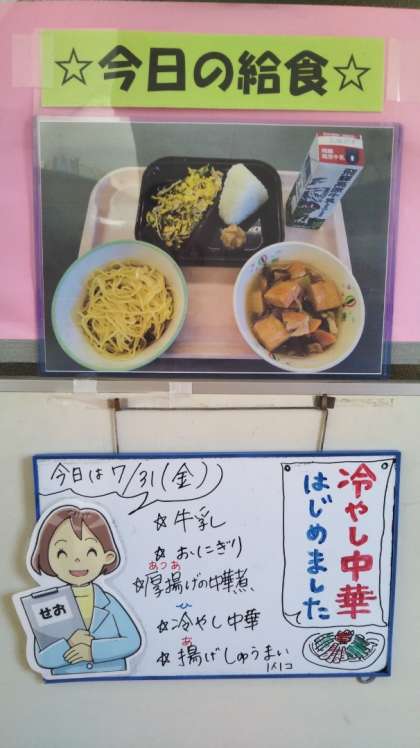 ☆今日の給食☆
飛騨高原牛乳
今日は7/31(金)
☆牛乳
☆おにぎり
あつあ
☆厚揚げの中華煮
ひ
☆冷やし中華
あ
☆揚げしゅうまい
1人1コ
冷やし中華
はじめました
せお